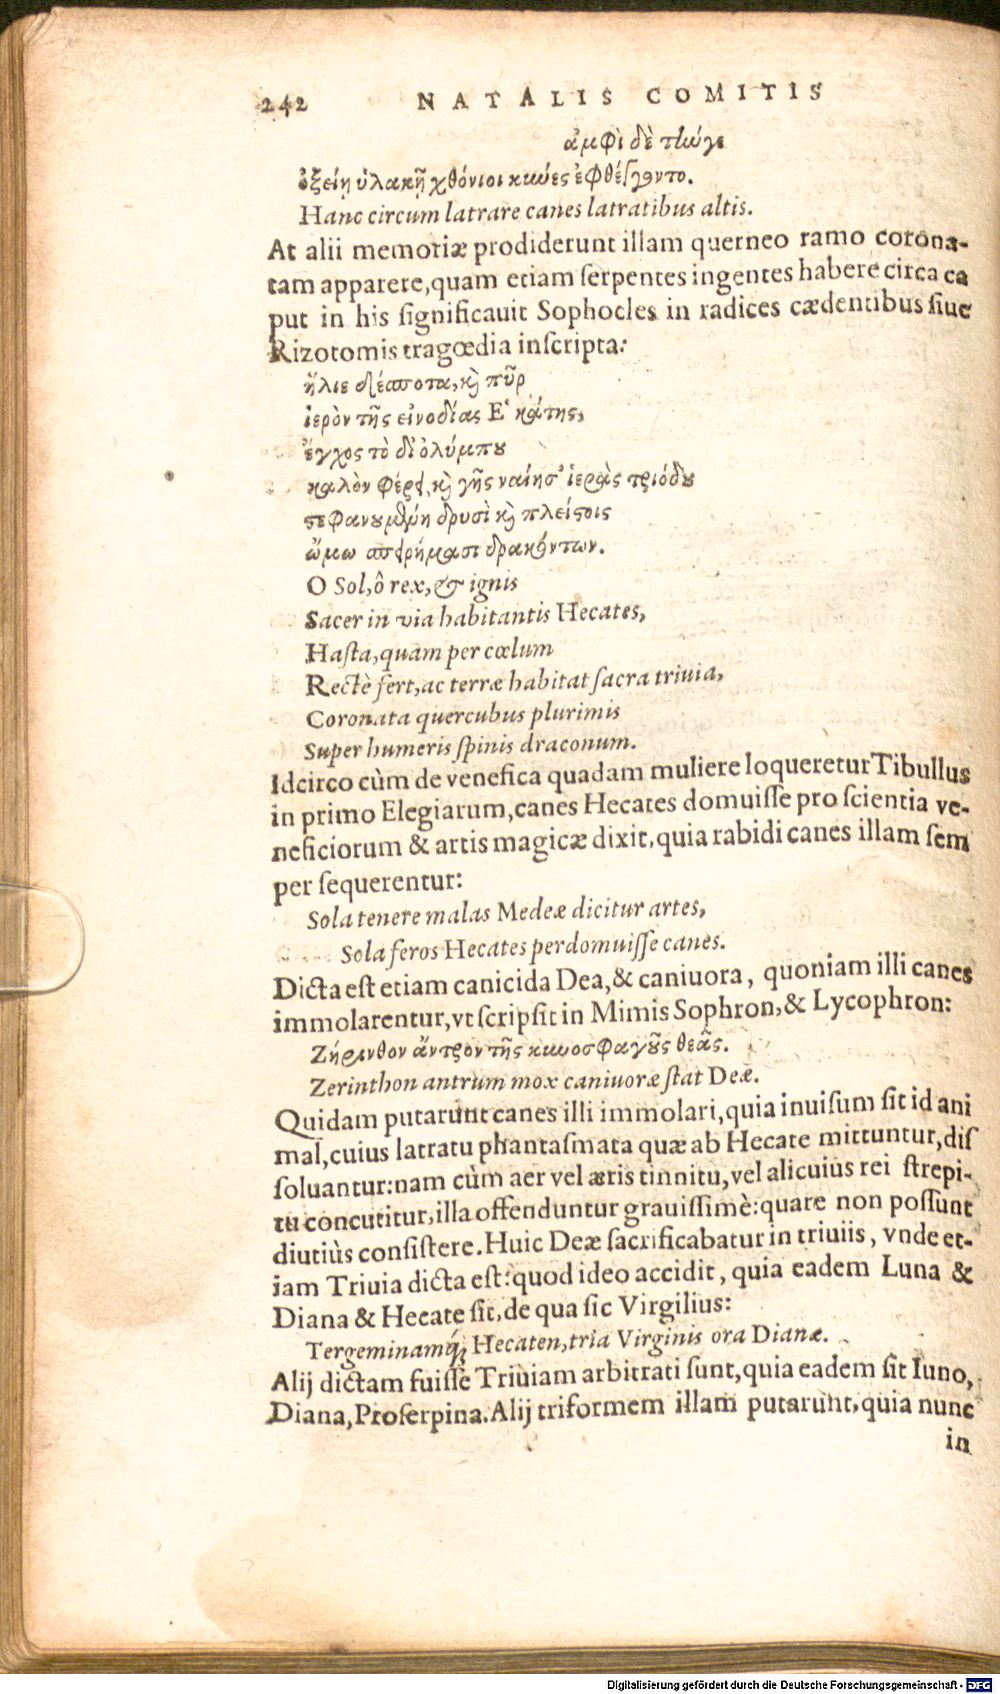 242 NATALIS COMITIS
ἀμφὶ δὲ τήνγε
ὀξείῃ ὑλακῇ χθόνιοι κύνες ἐφθέγγοντο.
Hanc circum latrare canes latratibus altis.
At alii memoriæ prodiderunt illam querneo ramo corona-
tam apparere, quam etiam serpentes ingentes habere circa ca
put in his significauit Sophocles in radices cædentibus siue
Rizotomis tragœdia inscripta:
ἥλιε δέσποτα, καὶ πῦρ
ἱερὸν τῆς εἰνοδίας Ἑκάτης,
ἔγχος τὸ δι᾽ ὀλύμπου
καλὸν φέρει, καὶ γῆς ναίησ᾽ ἱερὰς τριόδου
στεφανουμένη δρυσὶ καὶ πλείστοις
ὤμω σπειρήμασι δρακόντων.
O Sol, ô rex, & ignis
Sacer in via habitantis Hecates,
Hasta, quam per cœlum
Rectè fert, ac terræ habitat sacra triuia,
Coronata quercubus plurimis
Super humeris spinis draconum.
Idcirco cùm de venefica quadam muliere loqueretur Tibullus
in primo Elegiarum, canes Hecates domuisse pro scientia ve-
neficiorum & artis magicæ dixit, quia rabidi canes illam sem
per sequerentur:
Sola tenere malas Medeæ dicitur artes,
Sola feros Hecates perdomuisse canes.
Dicta est etiam canicida Dea, & caniuora, quoniam illi canes
immolarentur, vt scripsit in Mimis Sophron, & Lycophron:
Ζήρινθον ἄντρον τῆς κυνοσφαγοῦς θεᾶς.
Zerinthon antrum mox caniuoræ stat Deæ.
Quidam putarunt canes illi immolari, quia inuisum sit id ani
mal, cuius latratu phantasmata quæ ab Hecate mittuntur, dis
soluantur: nam cùm aer vel æris tinnitu, vel alicuius rei strepi-
tu concutitur, illa offenduntur grauissimè: quare non possunt
diutiùs consistere. Huic Deæ sacrificabatur in triuiis, vnde et-
iam Triuia dicta est: quod ideo accidit, quia eadem Luna &
Diana & Hecate sit, de qua sic Virgilius:
Tergeminamq́; Hecaten, tria Virginis ora Dianæ.
Alij dictam fuisse Triuiam arbitrati sunt, quia eadem sit Iuno,
Diana, Proserpina. Alij triformem illam putarunt, quia nunc
in
Digitalisierung gefördert durch die Deutsche Forschungsgemeinschaft - DFG